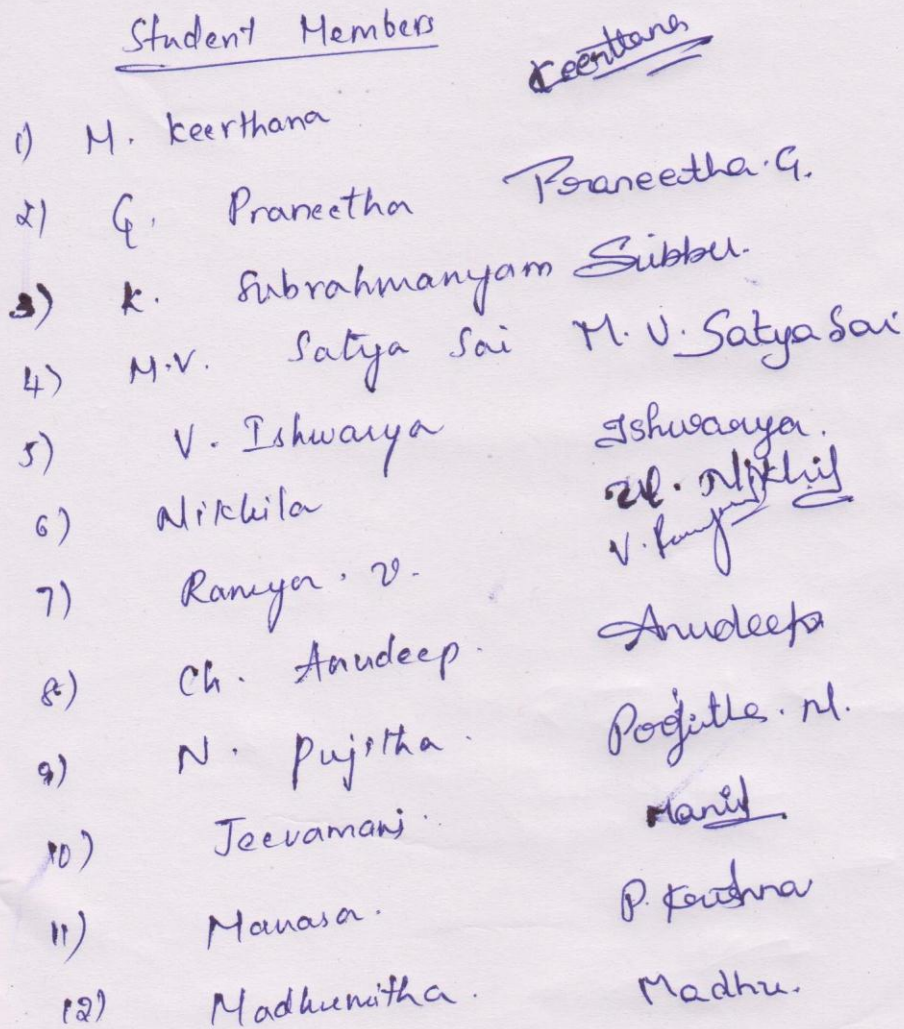 Student Members
1) M. Keerthana Keerthana
2) G. Praneetha Praneetha.G.
3) K. Subrahmanyam Subbu.
4) M.V. Satya Sai M.V. Satya Sai
5) V. Ishwarya Ishwarya.
6) Nikhila Nikhil
7) Ramya. V. V.
8) Ch. Anudeep. Anudeep
9) N. Pujitha. Poojitha. N.
10) Jeevamani.
11) Manasa. P.
12) Madhumitha. Madhu.